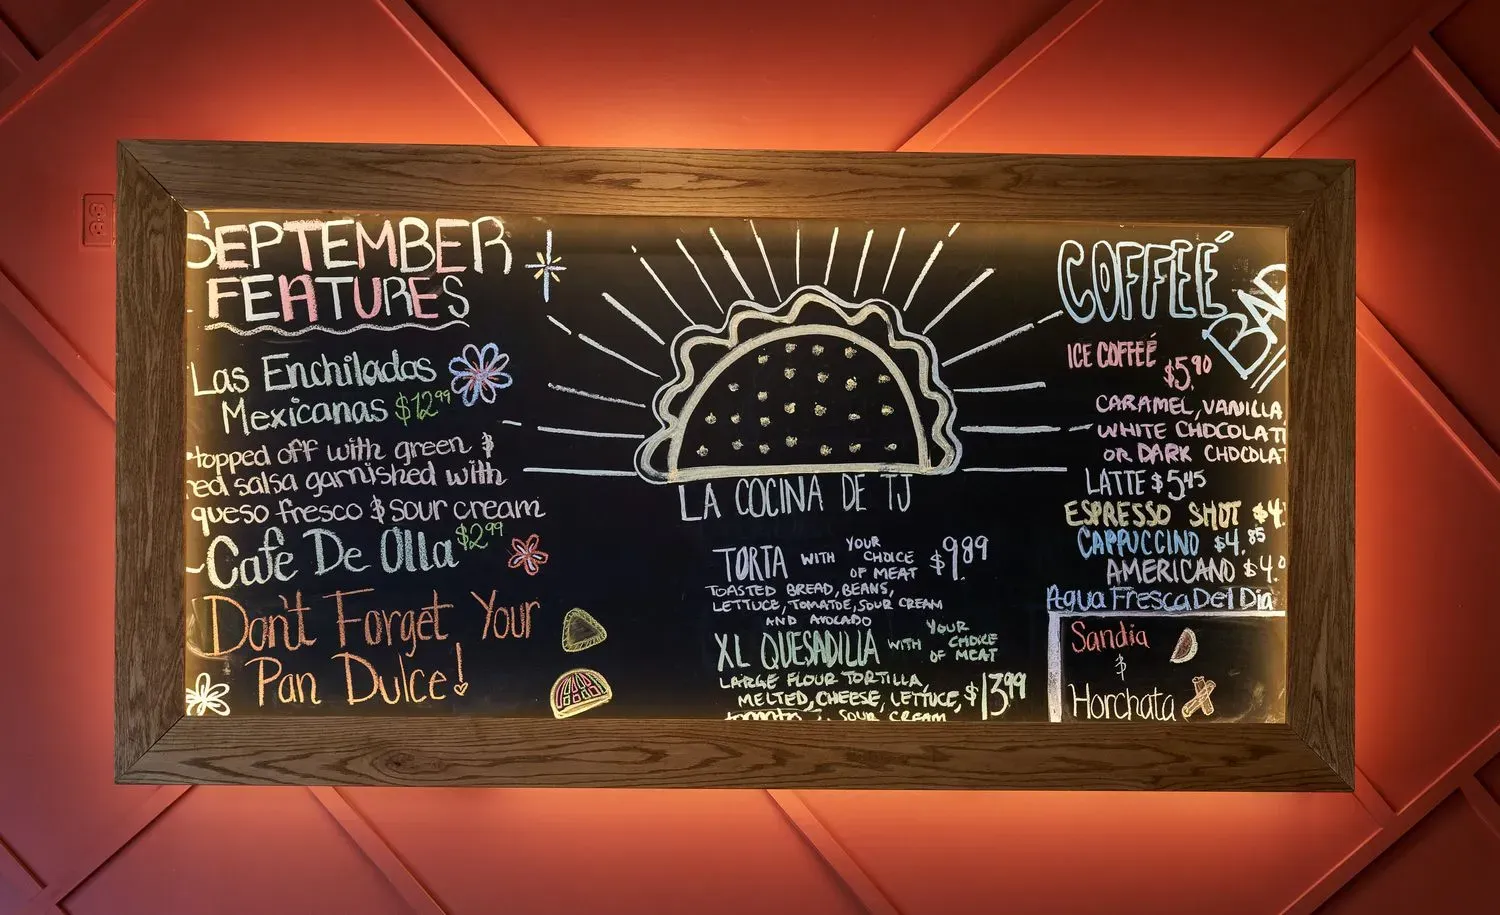 SEPTEMBER
FEATURES
Las Enchiladas
Mexicanas $12.99
topped off with green &
ed salsa garnished with
queso fresco & sour cream
Cafe De Olla $2.99
Don't Forget Your
Pan Dulce!
LA COCINA DE TJ
TORTA WITH YOUR CHOICE OF MEAT $9.89
TOASTED BREAD, BEANS,
LETTUCE, TOMATOE, SOUR CREAM
AND AVOCADO
XL QUESADILLA WITH YOUR CHOICE OF MEAT
LARGE FLOUR TORTILLA,
MELTED, CHEESE, LETTUCE, $13.99
tomato, SOUR CREAM
COFFEÉ
BAR
ICE COFFEÉ $5.90
CARAMEL, VANILLA
WHITE CHOCOLAT
OR DARK CHOCOLAT
LATTE $5.45
ESPRESSO SHOT $4.
CAPPUCCINO $4.85
AMERICANO $4.0
Agua Fresca Del Dia
Sandia
&
Horchata